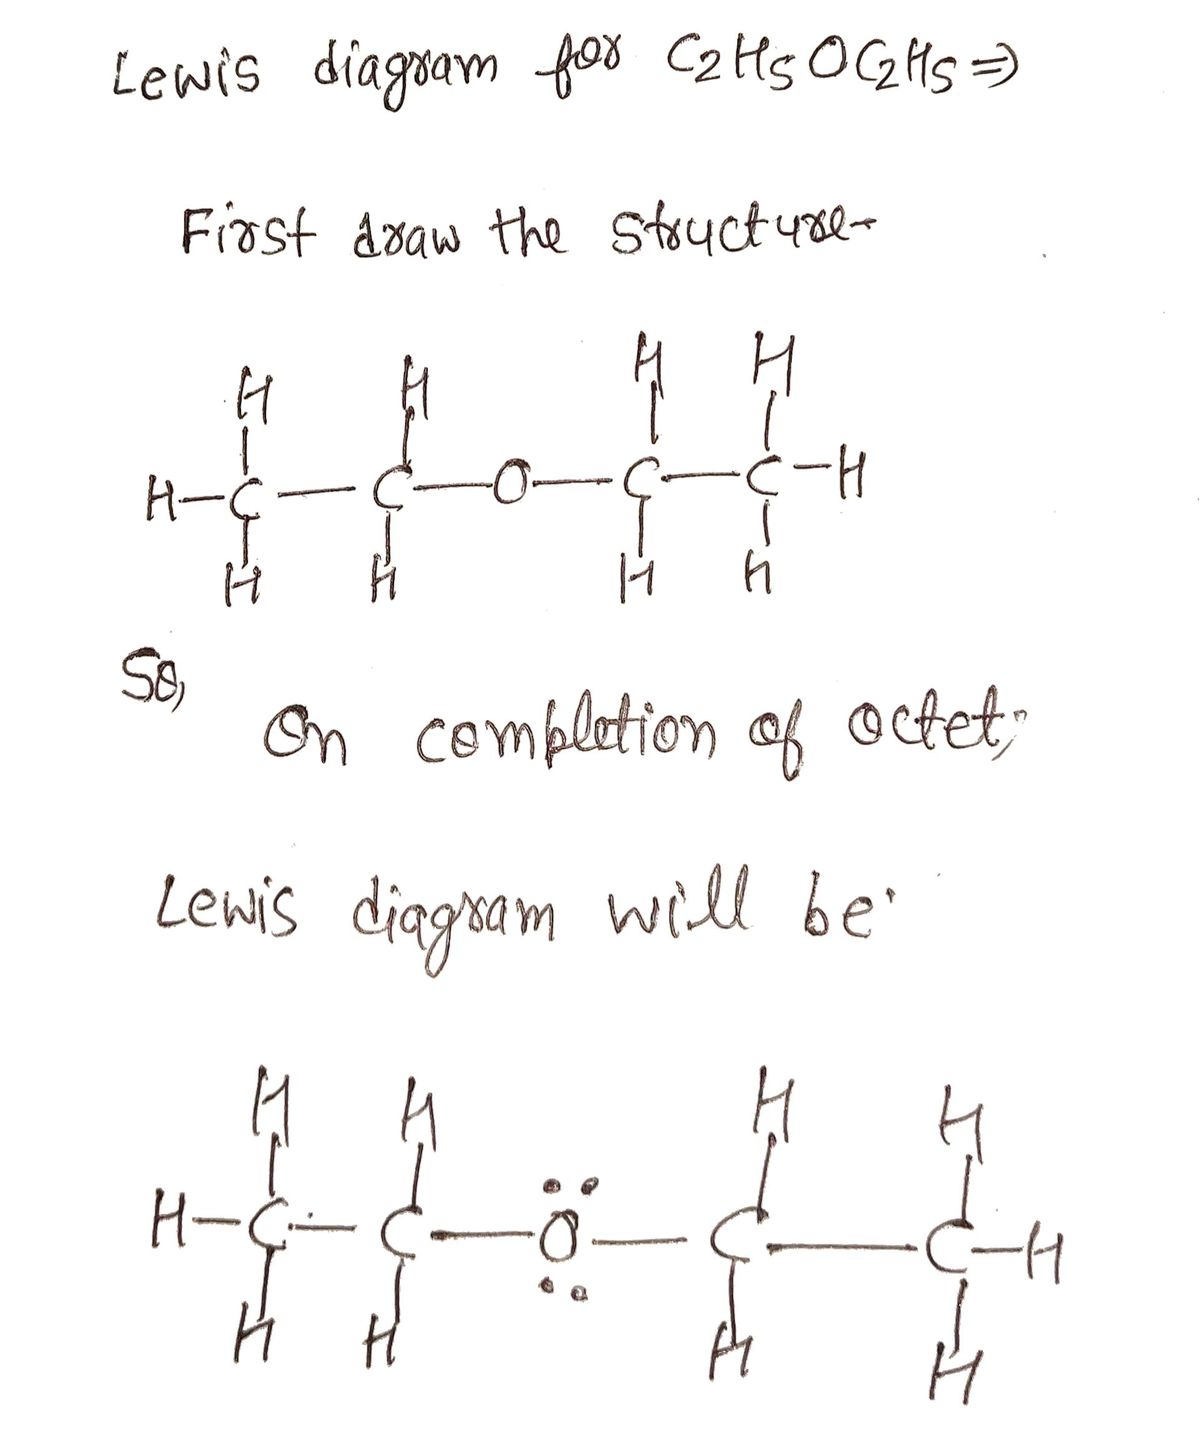 Lewis diagram for C2H5OC2H5⇒
First draw the structure-
H H H H
H-C-C-O-C-C-H
H H H H
So,
On completion of octet,
Lewis diagram will be
H H H H
H-C-C-O-C-C-H
H H H H